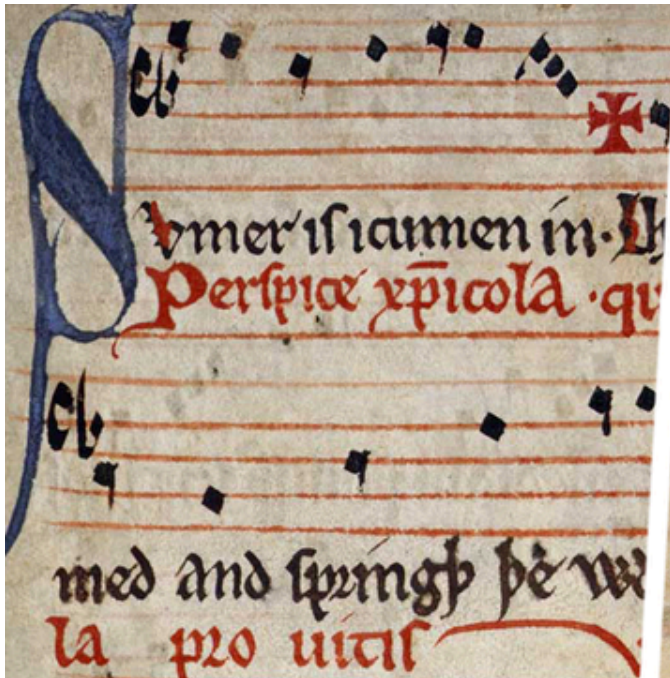 Svmer is icumen in· Lh
Perspice xp̄icola ·qu
med and springþ þe we
la pro uitis